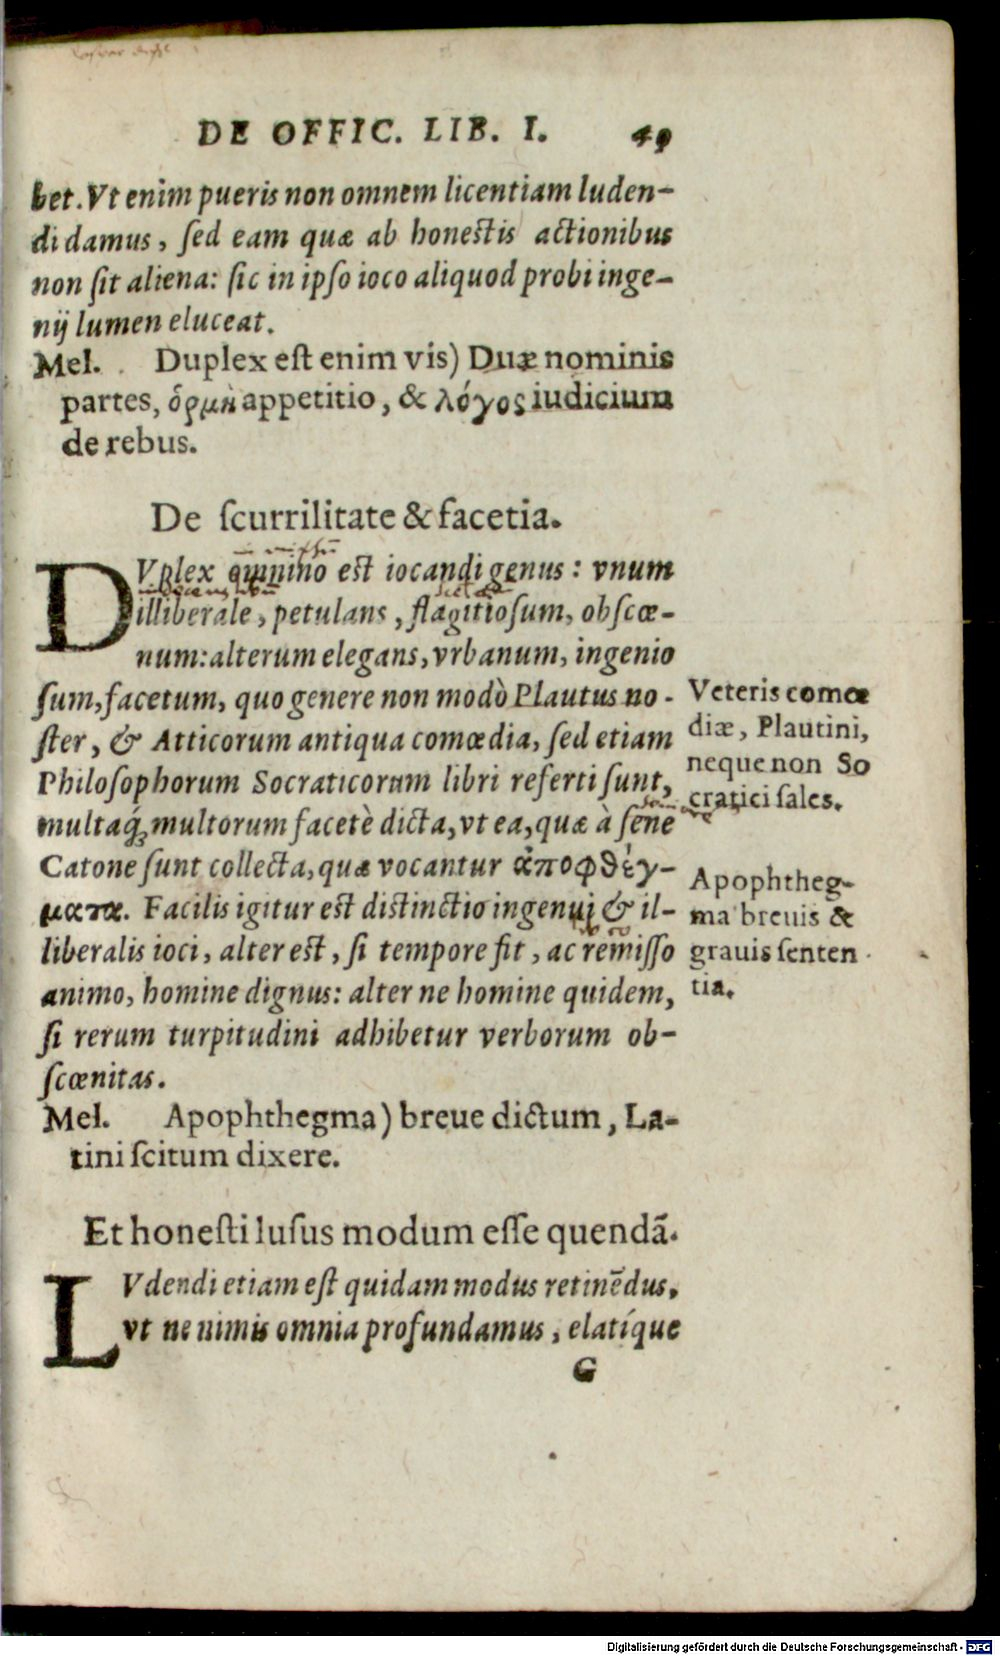 DE OFFIC. LIB. I. 49
bet. Vt enim pueris non omnem licentiam luden-
di damus, ſed eam quæ ab honestis actionibus
non ſit aliena: ſic in ipſo ioco aliquod probi inge-
nij lumen eluceat.
Mel. Duplex eſt enim vis) Duæ nominis
partes, ὁρμὴ appetitio, & λόγος iudicium
de rebus.
De ſcurrilitate & facetia.
DVplex omnino eſt iocandi genus: vnum
illiberale, petulans, flagitioſum, obſcœ-
num: alterum elegans, vrbanum, ingenio
ſum, facetum, quo genere non modò Plautus no-
ſter, & Atticorum antiqua comœdia, ſed etiam
Philoſophorum Socraticorum libri referti ſunt,
multaq́; multorum facetè dicta, vt ea, quæ à ſene
Catone ſunt collecta, quæ vocantur ἀποφθέγ-
ματα. Facilis igitur eſt distinctio ingenui & il-
liberalis ioci, alter eſt, ſi tempore fit, ac remiſſo
animo, homine dignus: alter ne homine quidem,
ſi rerum turpitudini adhibetur verborum ob-
ſcœnitas.
Veteris comœ
diæ, Plautini,
neque non So
cratici ſales.
Apophtheg-
ma breuis &
grauis ſenten
tia.
Mel. Apophthegma) breue dictum, La-
tini ſcitum dixere.
Et honeſti luſus modum eſſe quendã.
LVdendi etiam eſt quidam modus retinẽdus,
vt ne nimis omnia profundamus, elatíque
G
Digitalisierung gefördert durch die Deutsche Forschungsgemeinschaft - DFG